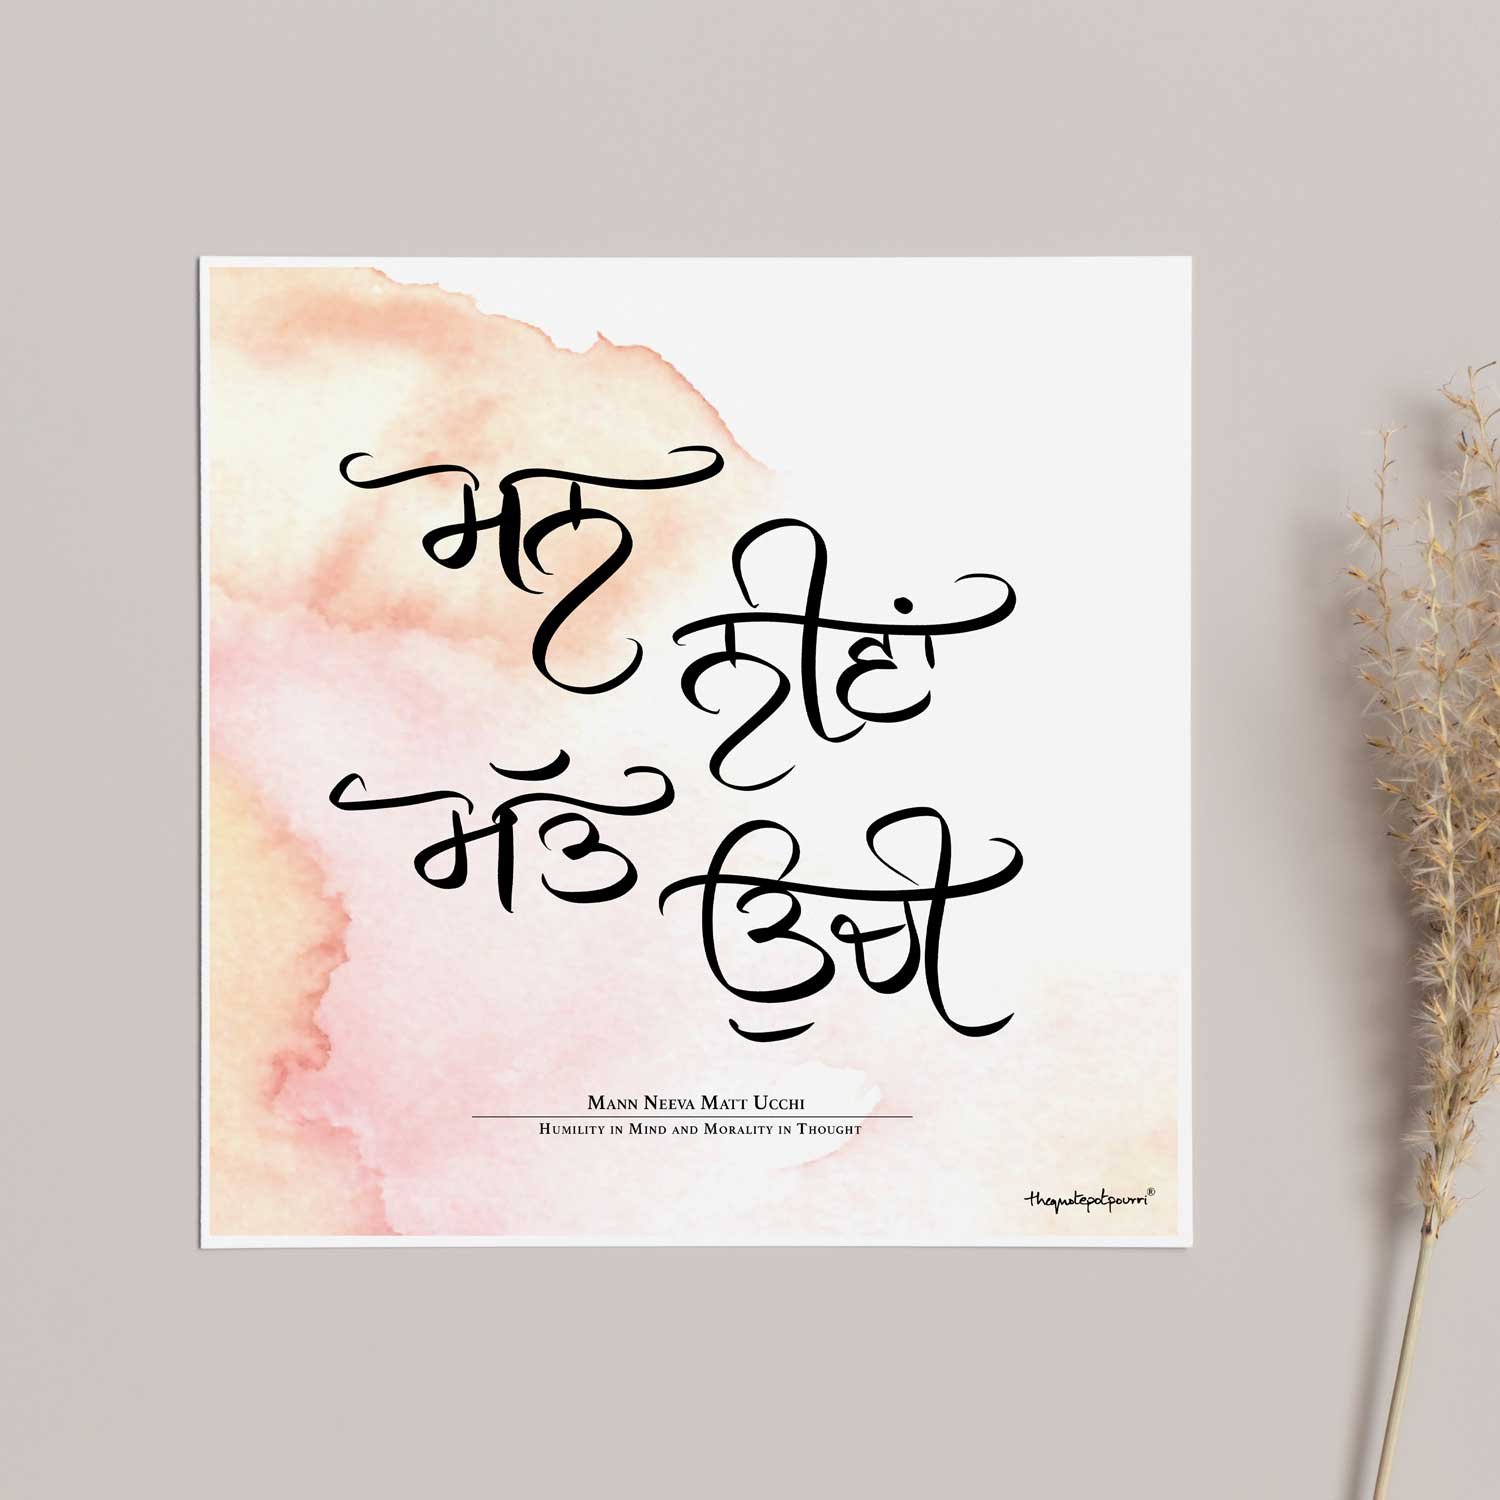 ਮਨ
ਨੀਵਾਂ
ਮੱਤ
ਉਚੀ
MANN NEEVA MATT UCCHI
HUMILITY IN MIND AND MORALITY IN THOUGHT
thequotepotpourri®